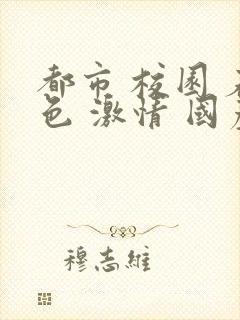 都市 校園
色 激情 國
穆志維